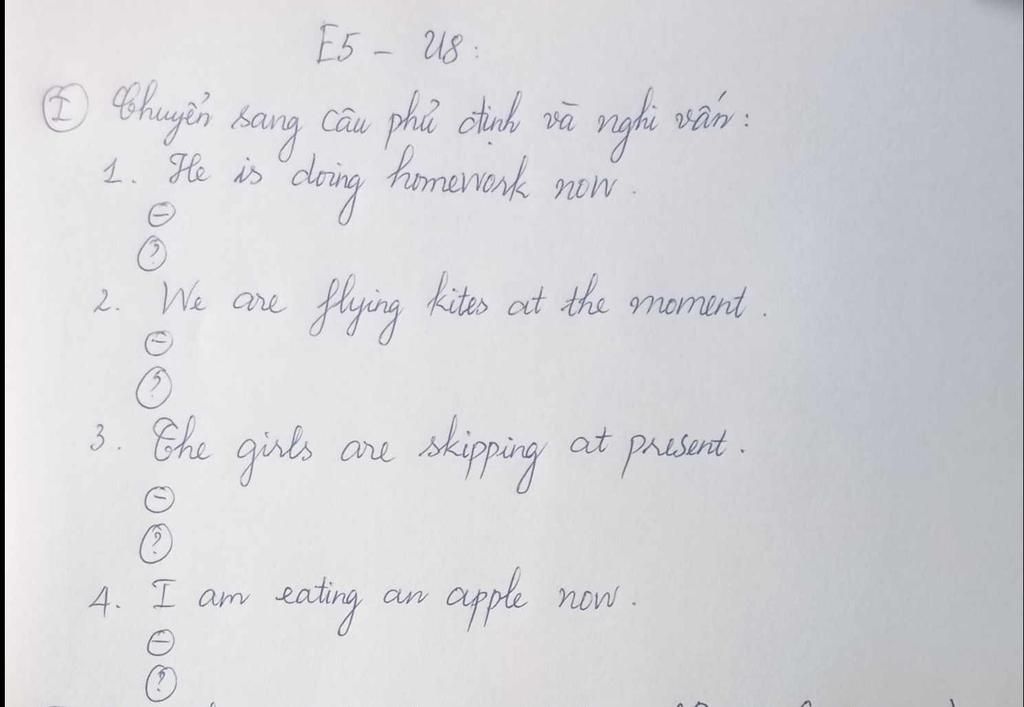 E5 - U8:
I Chuyển sang câu phủ định và nghi vấn:
1. He is doing homework now.
-
?
2. We are flying kites at the moment.
-
?
3. The girls are skipping at present.
-
?
4. I am eating an apple now.
-
?